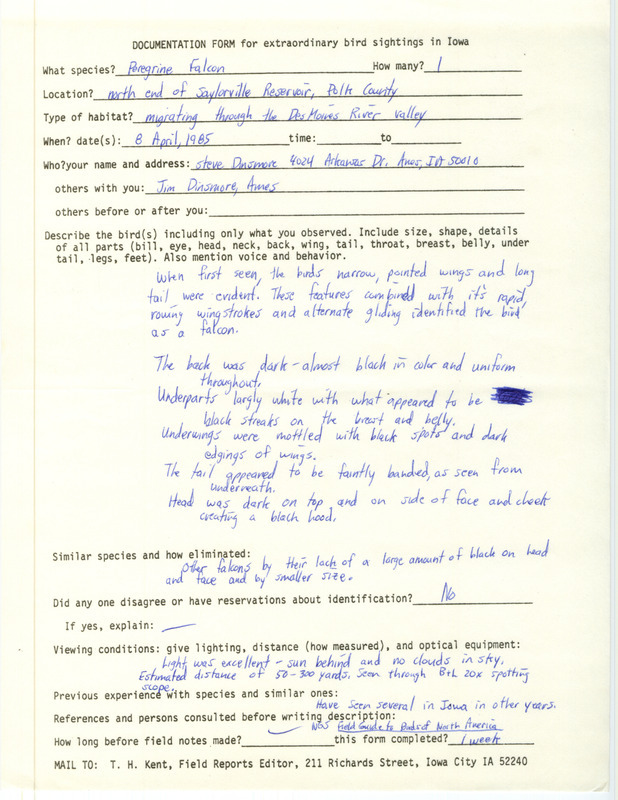 DOCUMENTATION FORM for extraordinary bird sightings in Iowa
What species? Peregrine Falcon How many? 1
Location? north end of Saylorville Reservoir, Polk County
Type of habitat? migrating through the Des Moines River valley
When? date(s): 8 April, 1985 time: to
Who? your name and address: Steve Dinsmore 4024 Arkansas Dr. Ames, IA 50010
others with you: Jim Dinsmore, Ames
others before or after you:
Describe the bird(s) including only what you observed. Include size, shape, details
of all parts (bill, eye, head, neck, back, wing, tail, throat, breast, belly, under
tail, legs, feet). Also mention voice and behavior.
When first seen, the birds narrow, pointed wings and long
tail were evident. These features combined with it's rapid,
rowing wingstrokes and alternate gliding identified the bird
as a falcon.
The back was dark - almost black in color and uniform
throughout.
Underparts largly white with what appeared to be
black streaks on the breast and belly.
Underwings were mottled with black spots and dark
edgings of wings.
The tail appeared to be faintly banded, as seen from
underneath.
Head was dark on top and on side of face and cheek
creating a black hood.
Similar species and how eliminated:
Other falcons by their lack of a large amount of black on head
and face and by smaller size.
Did any one disagree or have reservations about identification? No
If yes, explain: —
Viewing conditions: give lighting, distance (how measured), and optical equipment:
Light was excellent - sun behind and no clouds in sky.
Estimated distance of 50-300 yards. Seen through B+L 20x spotting
scope.
Previous experience with species and similar ones:
Have seen several in Iowa in other years.
References and persons consulted before writing description:
NGS Field Guide to Birds of North America
How long before field notes made? this form completed? 1 week
MAIL TO: T. H. Kent, Field Reports Editor, 211 Richards Street, Iowa City IA 52240